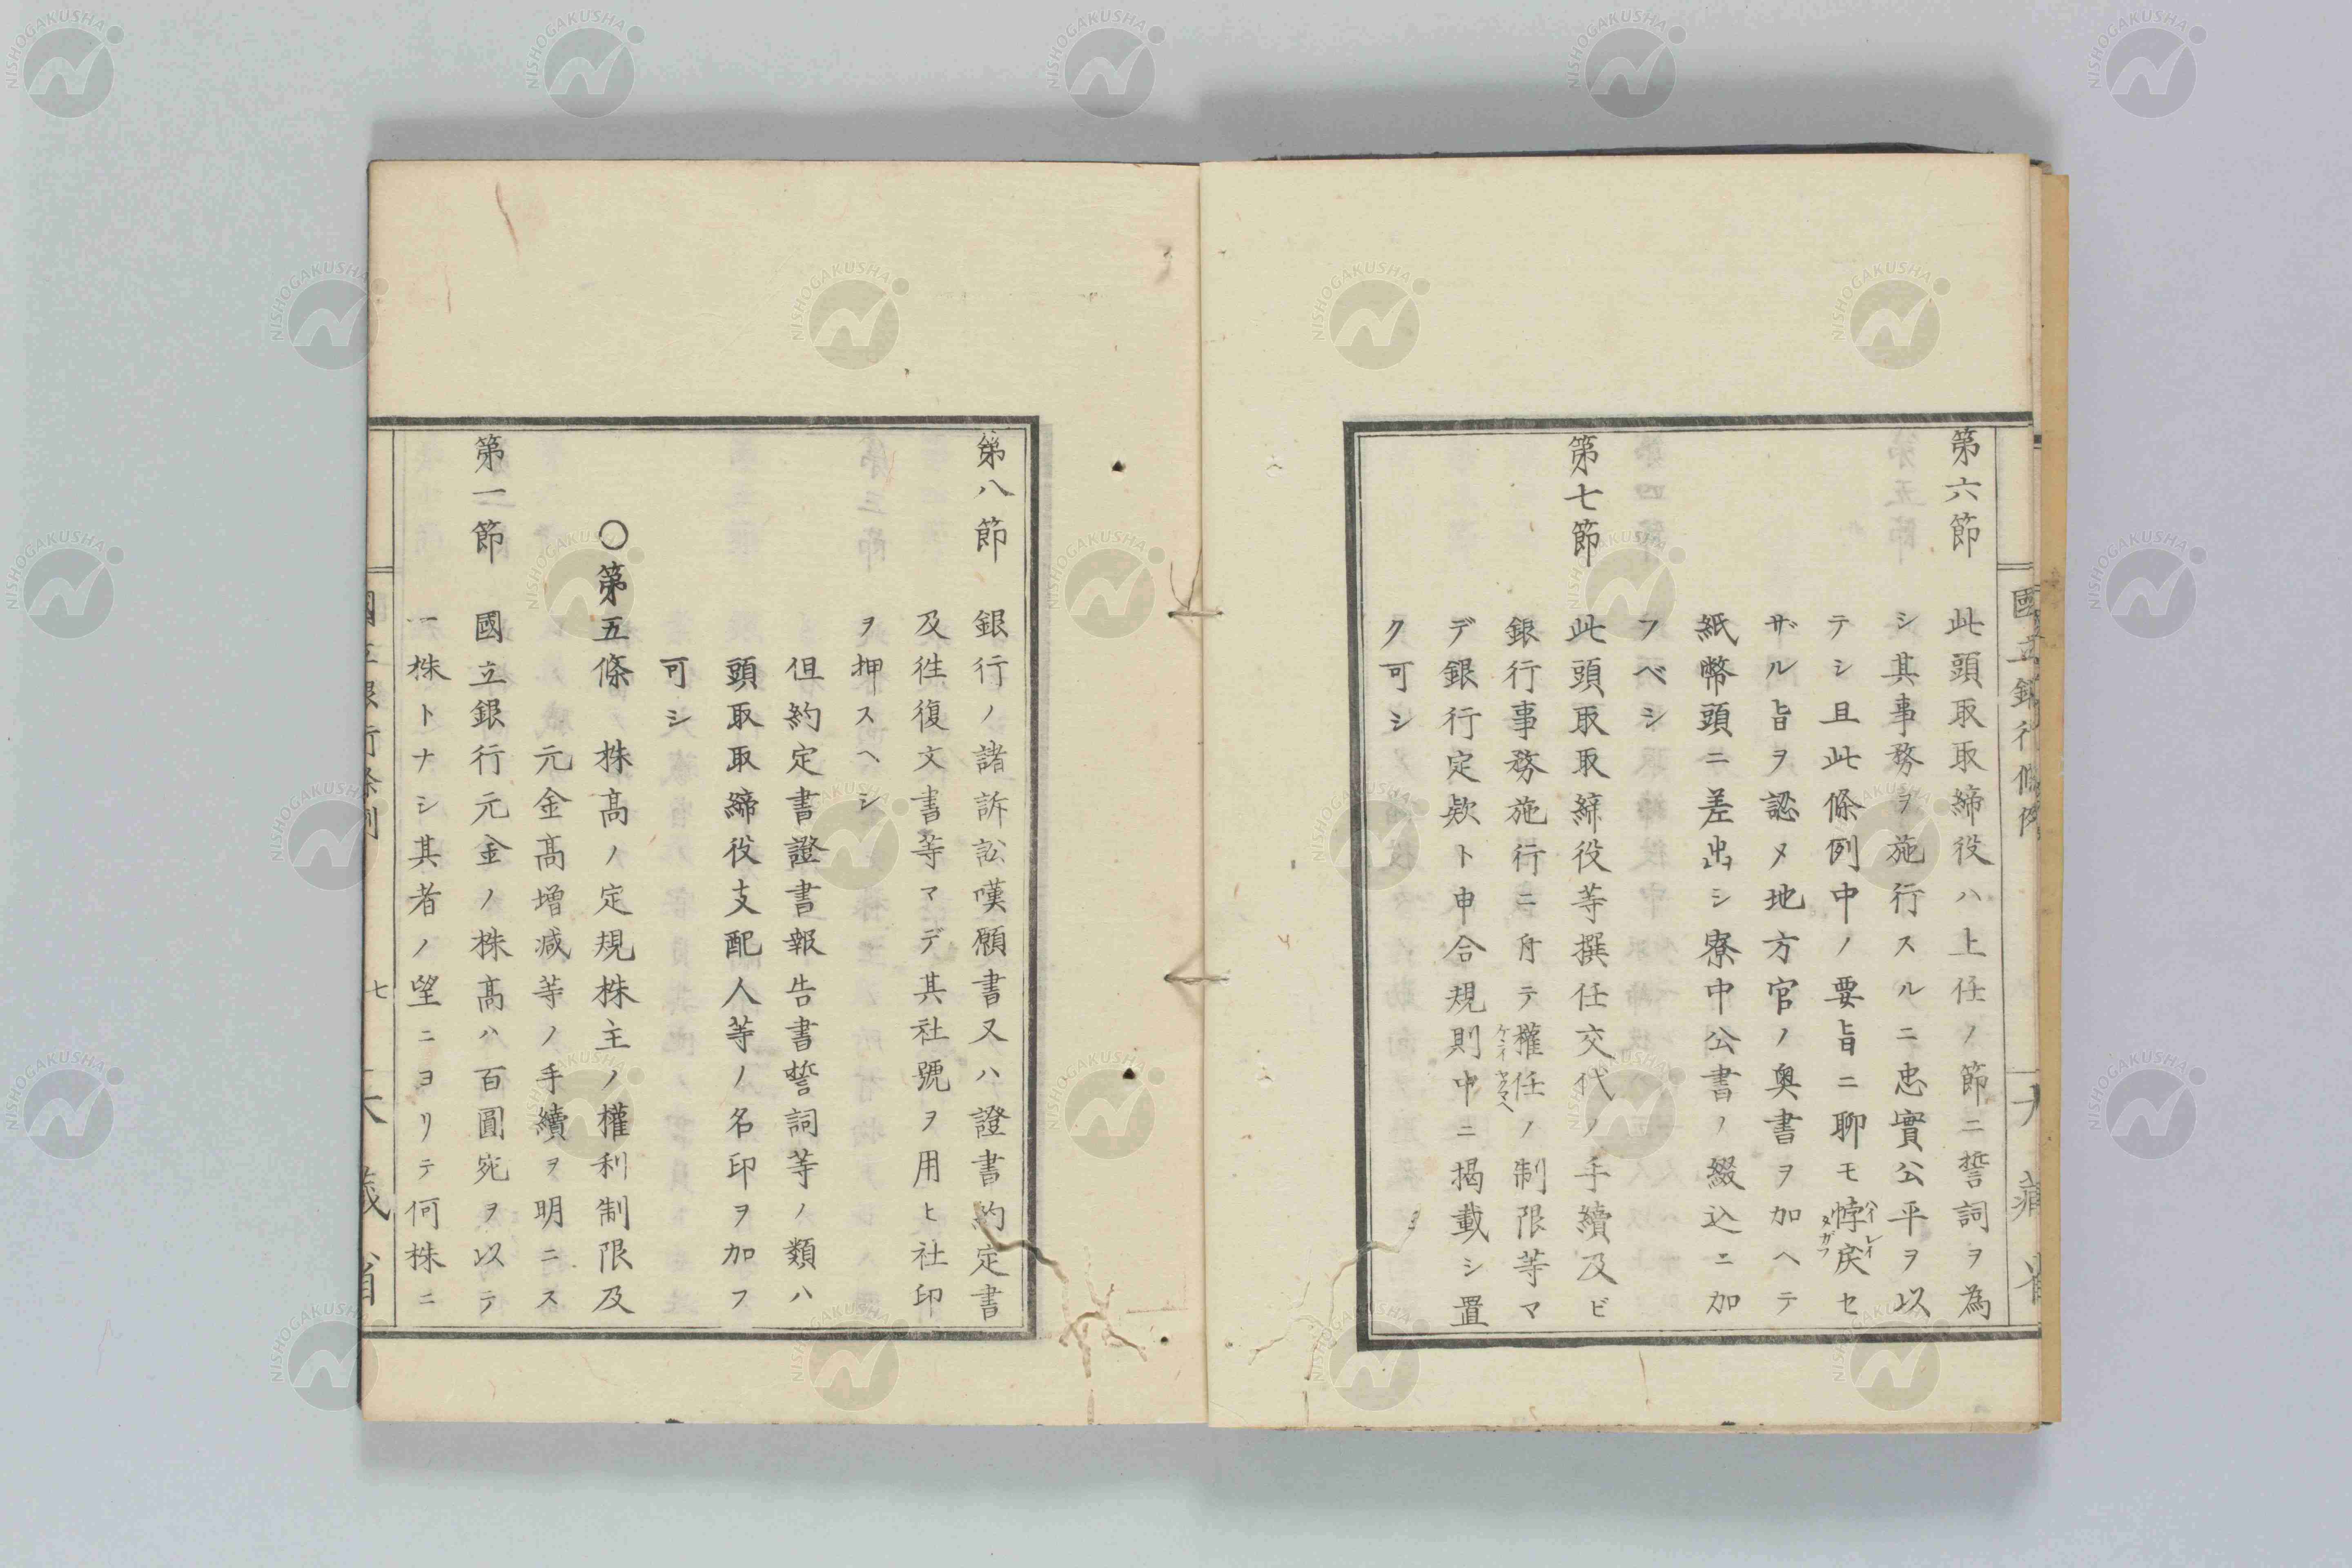 國立銀行條例
大藏省
第六節 此頭取取締役ハ上任ノ節ニ誓詞ヲ為
シ其事務ヲ施行スルニ忠實公平ヲ以
テシ且此條例中ノ要旨ニ聊モ悖戻セ
ハイレイ
タガフ
ザル旨ヲ認メ地方官ノ奥書ヲ加ヘテ
紙幣頭ニ差出シ寮中公書ノ綴込ニ加
フベシ
第七節 此頭取取締役等撰任交代ノ手續及ビ
銀行事務施行ニ付テ權任ノ制限等マ
デ銀行定欵ト申合規則中ニ掲載シ置
ク可シ
第八節 銀行ノ諸訴訟嘆願書又ハ證書約定書
及徃復文書等マデ其社號ヲ用ヒ社印
ヲ押スヘシ
但約定書證書報告書誓詞等ノ類ハ
頭取取締役支配人等ノ名印ヲ加フ
可シ
〇第五條 株高ノ定規株主ノ權利制限及
元金高増减等ノ手續ヲ明ニス
第一節 國立銀行元金ノ株高ハ百圓宛ヲ以テ
一株トナシ其者ノ望ニヨリテ何株ニ
國立銀行條例
七
大藏省
NISHOGAKUSHA